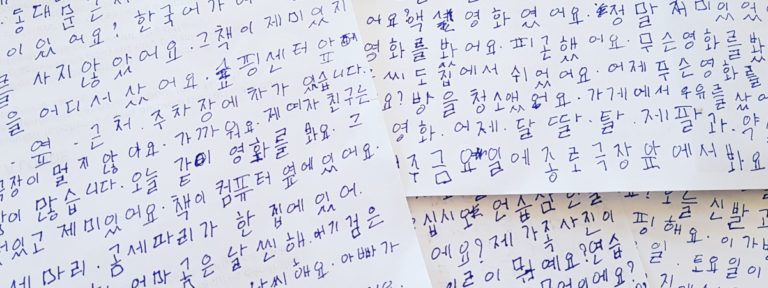 동대문
이 있어요? 한국어가
사지 않았어요. 그책이 제미있지
을 어디서 샀어요. 쇼핑센터 앞
옆. 근처. 주차장에 차가 있습니다.
극장이 멀지 않아요. 가까워요. 제여자친구는
이 많습니다. 오늘 같이 영화를 봐요. 그
있고 제미있어요. 책이 컴퓨터 옆에 있어요.
세마리. 곰세마리가 한 집에 있어.
엄마곰은 날씬해. 여기 검은
해요. 아빠가
어요? 액션 영화였어요. 정말 저미있었
영화를 봤어요. 피곤했어요. 무슨영화를 봤
씨도 집에서 쉬었어요. 어제 무슨영화를
요? 방을 청소했어요. 가게에서 우유를 샀어
영화. 어제. 달. 딸. 탈. 제팔과. 약
주 금요일에 종로 극장 앞에서 봐요
십시오. 연습
에요? 제 가족사진이
일곡이 뭐예요? 연습
오늘 신발
핑해요. 이가방
일. 토요일이